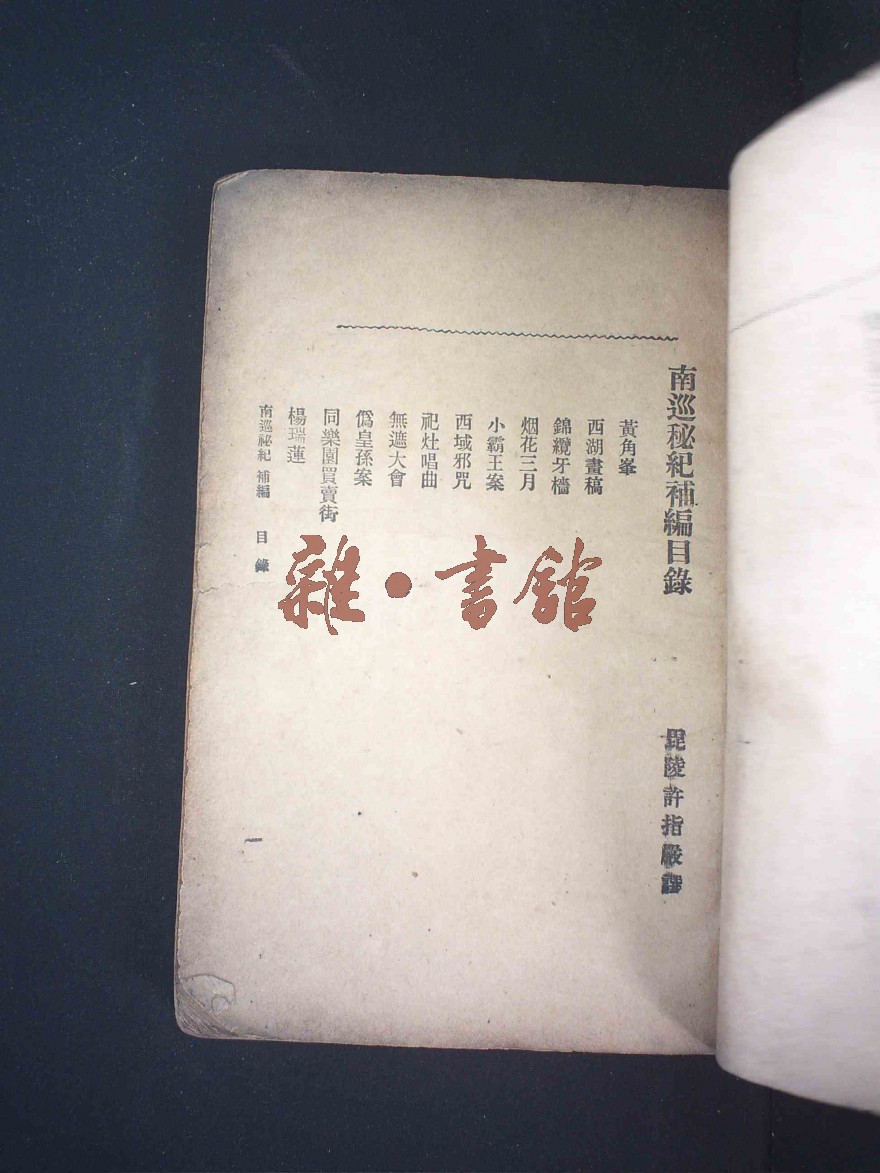 南巡秘紀補編目錄
毘陵許指嚴譔
黃角峯
西湖畫稿
錦纜牙檣
烟花三月
小霸王案
西域邪咒
祀灶唱曲
無遮大會
僞皇孫案
同樂園買賣街
楊瑞蓮
南巡祕紀 補編 目錄
一
雜·書館